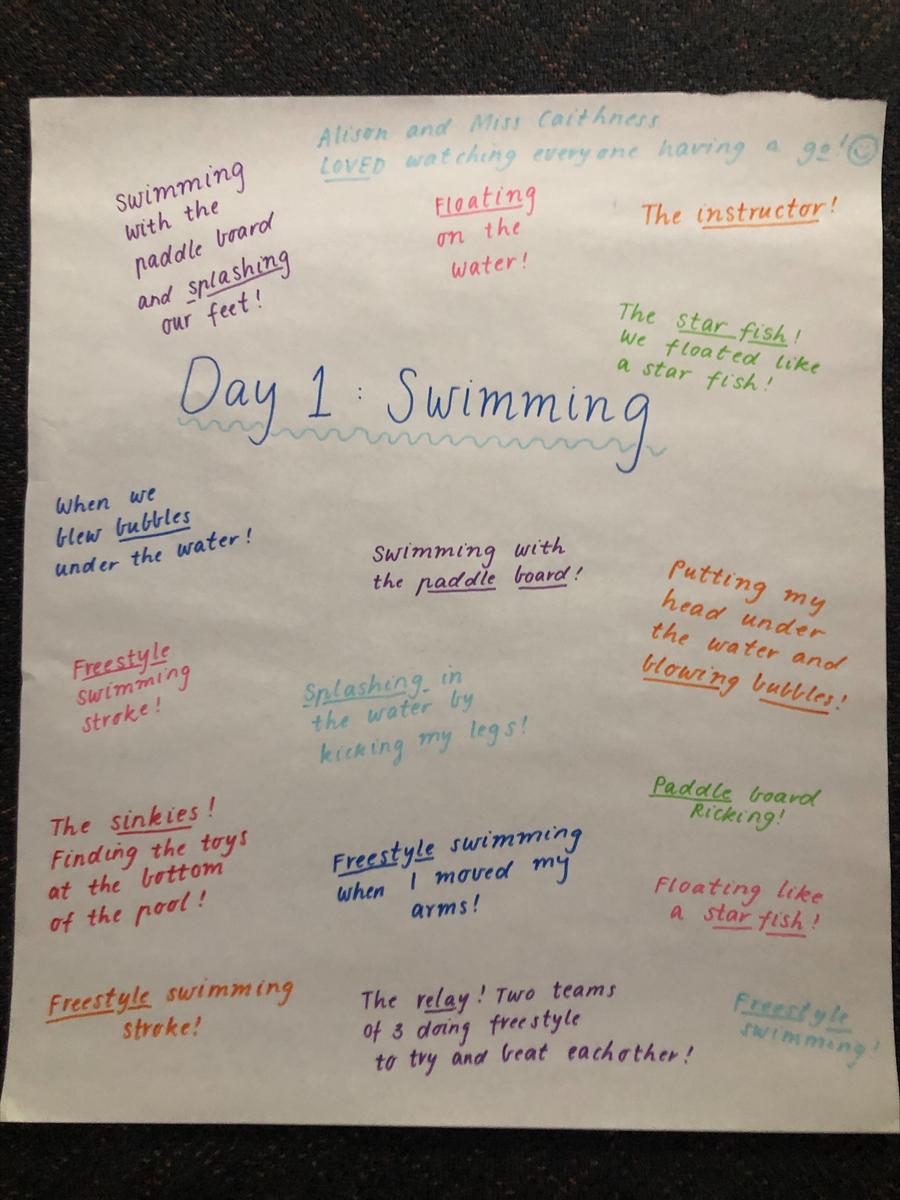 Alison and Miss Caithness
LOVED watching everyone having a go!
Swimming
with the
paddle board
and splashing
our feet!
Floating
on the
water!
The instructor!
The star fish!
We floated like
a star fish!
Day 1 : Swimming
When we
blew bubbles
under the water!
Swimming with
the paddle board!
Putting my
head under
the water and
blowing bubbles!
Freestyle
swimming
stroke!
Splashing in
the water by
kicking my legs!
Paddle board
Kicking!
The sinkies!
Finding the toys
at the bottom
of the pool!
Freestyle swimming
when I moved my
arms!
Floating like
a star fish!
Freestyle swimming
stroke!
The relay! Two teams
of 3 doing freestyle
to try and beat eachother!
Freestyle
swimming!